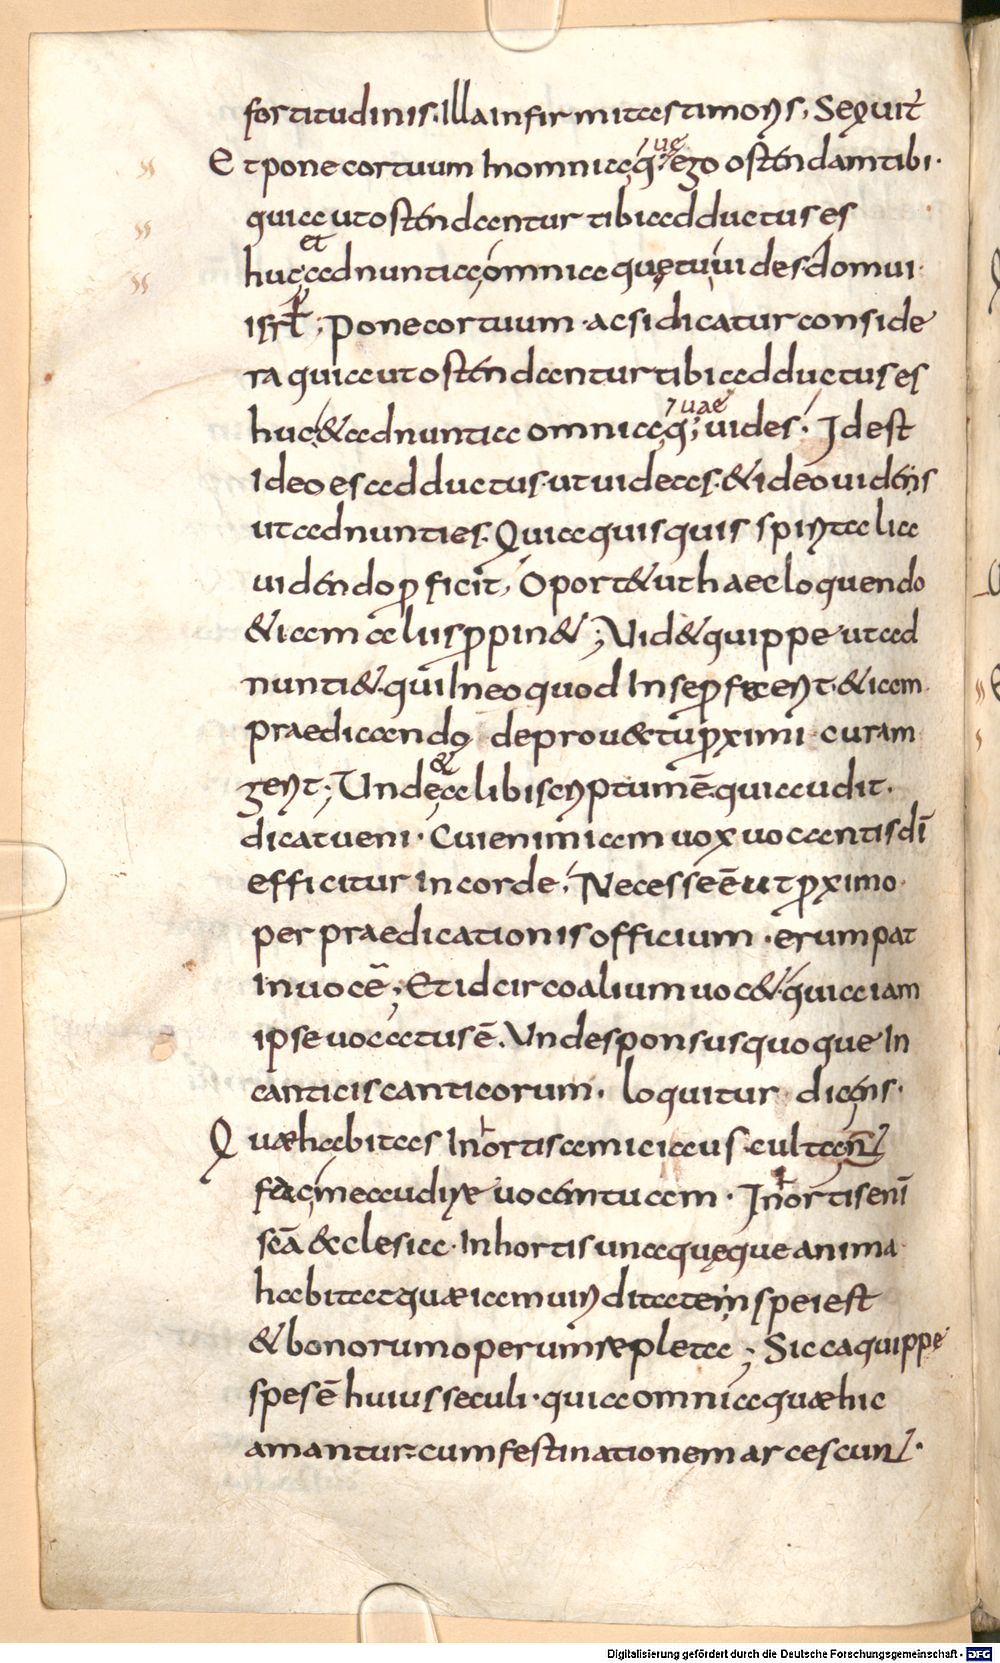 fortitudinis. Illa infirmitas timoris; Sequit̄
Et pone cor tuum In omnia q; uę ego ostendam tibi.
quia ut ostendantur tibi adductus es
huc, et adnuntia omnia quę tu uides domui
isrł; Pone cor tuum. ac si dicatur conside
ra quia ut ostendantur tibi adductus es
huc & adnuntia omnia q; uae uides. Idest
Ideo es adductus. ut uideas. & ideo uidens
ut adnunties. Quia quisquis spiritalia
uidendo ꝓficit, Oport& ut haec loquendo
& iam aliis ꝓpin&; Uid& quippe ut ad
nunti&. qui In eo quod In se ꝓfecerit. & iam
praedicando de prouectu ꝓximi curam
gerit; Unde & alibi scriptum ē. qui audit.
dicat ueni. Cui enim iam uox uocantis dī
efficitur In corde, Necesse ē ut ꝓximo
per praedicationis officium. erumpat
In uocē; Et idcirco alium uoc& quia iam
ipse uocatus ē. Unde sponsus quoque In
canticis canticorum. loquitur dicens.
Quæ habitas In ortis amici auscultant
fac me audire uocem tuam. In ortis enī
scā æclesia. In hortis unaquęque anima
habitat quæ iam uiriditate spei est
& bonorum operum repleta; Sicca quippe
spes ē huius seculi. quia omnia quæ hic
amantur cum festinatione marcescunt.
Digitalisierung gefördert durch die Deutsche Forschungsgemeinschaft - DFG